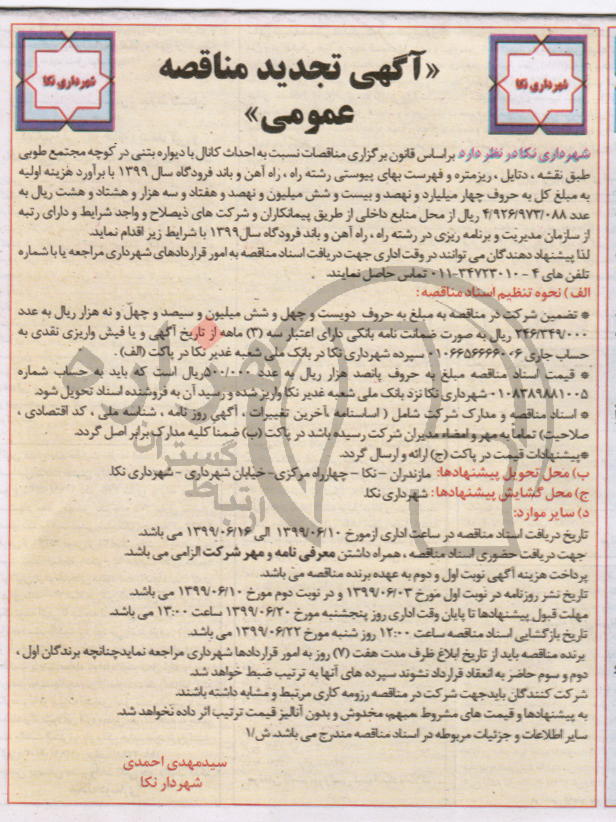 شهرداری نکا
«آگهی تجدید مناقصه
عمومی»
شهرداری نکا
شهرداری نکا در نظر دارد براساس قانون برگزاری مناقصات نسبت به احداث کانال با دیواره بتنی در کوچه مجتمع طوبی
طبق نقشه ، دتایل ، ریزمتره و فهرست بهای پیوستی رشته راه ، راه آهن و باند فرودگاه سال ۱۳۹۹ با برآورد هزینه اولیه
به مبلغ کل به حروف چهار میلیارد و نهصد و بیست و شش میلیون و نهصد و هفتاد و سه هزار و هشتاد و هشت ریال به
عدد ۴/۹۲۶/۹۷۳/۰۸۸ ریال از محل منابع داخلی از طریق پیمانکاران و شرکت های ذیصلاح و واجد شرایط و دارای رتبه
از سازمان مدیریت و برنامه ریزی در رشته راه ، راه آهن و باند فرودگاه سال۱۳۹۹ با شرایط زیر اقدام نماید.
لذا پیشنهاد دهندگان می توانند در وقت اداری جهت دریافت اسناد مناقصه به امور قراردادهای شهرداری مراجعه یا با شماره
تلفن های ۴ - ۳۴۷۲۳۰۱۰-۰۱۱ تماس حاصل نمایند.
الف ) نحوه تنظیم اسناد مناقصه :
* تضمین شرکت در مناقصه به مبلغ به حروف دویست و چهل و شش میلیون و سیصد و چهل و نه هزار ریال به عدد
۲۴۶/۳۴۹/۰۰۰ ریال به صورت ضمانت نامه بانکی دارای اعتبار سه (۳) ماهه از تاریخ آگهی و یا فیش واریزی نقدی به
حساب جاری ۰۱۰۶۶۵۶۶۶۶۰۰۶ سپرده شهرداری نکا در بانک ملی شعبه غدیر نکا در پاکت (الف) .
* قیمت اسناد مناقصه مبلغ به حروف پانصد هزار ریال به عدد ۵۰۰/۰۰۰ریال است که باید به حساب شماره
۰۱۰۸۳۸۹۸۸۱۰۰۵ شهرداری نکا نزد بانک ملی شعبه غدیر نکا واریز شده و رسید آن به فروشنده اسناد تحویل شود.
* اسناد مناقصه و مدارک شرکت شامل ( اساسنامه ،آخرین تغییرات ، آگهی روز نامه ، شناسه ملی ، کد اقتصادی ،
صلاحیت) تماماً به مهر و امضاء مدیران شرکت رسیده باشد در پاکت (ب) ضمنا کلیه مدارک برابر اصل گردد.
*پیشنهادات قیمت در پاکت (ج) ارائه و ارسال گردد.
ب) محل تحویل پیشنهادها: مازندران – نکا – چهارراه مرکزی- خیابان شهرداری – شهرداری نکا.
ج) محل گشایش پیشنهادها : شهرداری نکا.
د) سایر موارد:
تاریخ دریافت اسناد مناقصه در ساعت اداری ازمورخ ۱۳۹۹/۰۶/۱۰ الی ۱۳۹۹/۰۶/۱۶ می باشد.
جهت دریافت حضوری اسناد مناقصه ، همراه داشتن معرفی نامه و مهر شرکت الزامی می باشد.
پرداخت هزینه آگهی نوبت اول و دوم به عهده برنده مناقصه می باشد.
تاریخ نشر روزنامه در نوبت اول مورخ ۱۳۹۹/۰۶/۰۳ و در نوبت دوم مورخ ۱۳۹۹/۰۶/۱۰ می باشد.
مهلت قبول پیشنهادها تا پایان وقت اداری روز پنجشنبه مورخ ۱۳۹۹/۰۶/۲۰ ساعت ۱۳:۰۰ می باشد.
تاریخ بازگشایی اسناد مناقصه ساعت ۱۲:۰۰ روز شنبه مورخ ۱۳۹۹/۰۶/۲۲ می باشد.
برنده مناقصه باید از تاریخ ابلاغ ظرف مدت هفت (۷) روز به امور قراردادها شهرداری مراجعه نماید چنانچه برندگان اول ،
دوم و سوم حاضر به انعقاد قرارداد نشوند سپرده های آنها به ترتیب ضبط خواهد شد.
شرکت کنندگان باید جهت شرکت در مناقصه رزومه کاری مرتبط و مشابه داشته باشند.
به پیشنهادها و قیمت های مشروط ،مبهم، مخدوش و بدون آنالیز قیمت ترتیب اثر داده نخواهد شد.
سایر اطلاعات و جزئیات مربوطه در اسناد مناقصه مندرج می باشد. ش/۱
سیدمهدی احمدی
شهردار نکا
هزاره
گستران
ارتباط